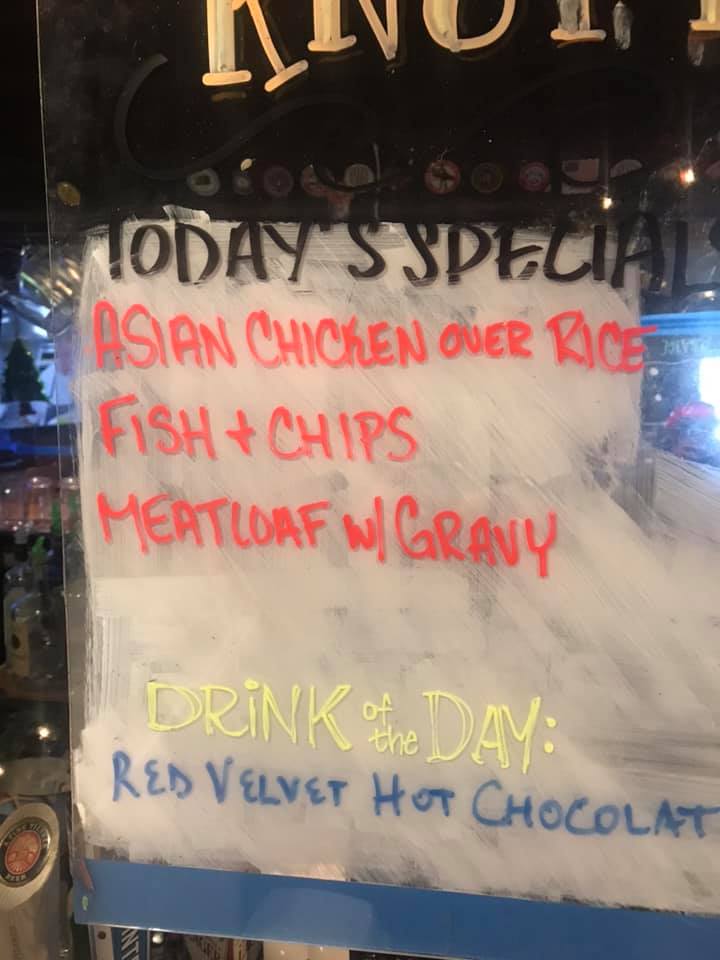 KNOT
TODAY'S SPECIALS
ASIAN CHICKEN OVER RICE
FISH + CHIPS
MEATLOAF W/ GRAVY
DRINK of the DAY:
RED VELVET HOT CHOCOLAT